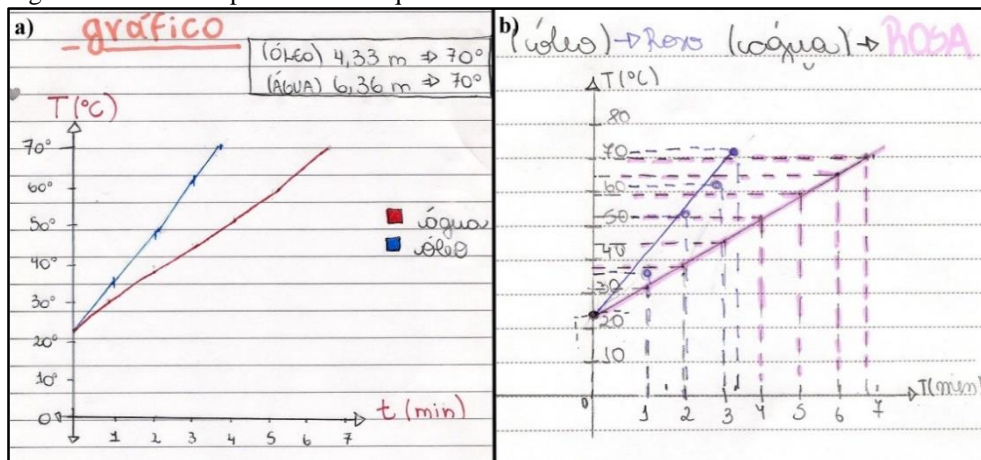 a)
gráfico
(ÓLEO) 4,33 m ⇒ 70°
(ÁGUA) 6,36 m ⇒ 70°
T(°C)
70°
60°
50°
40°
30°
20°
10°
0
1 2 3 4 5 6 7
t (min)
água
óleo
b)
(óleo) → Roxo (água) → ROSA
T(°C)
80
70
60
50
40
30
20
10
0
1 2 3 4 5 6 7
T(min)